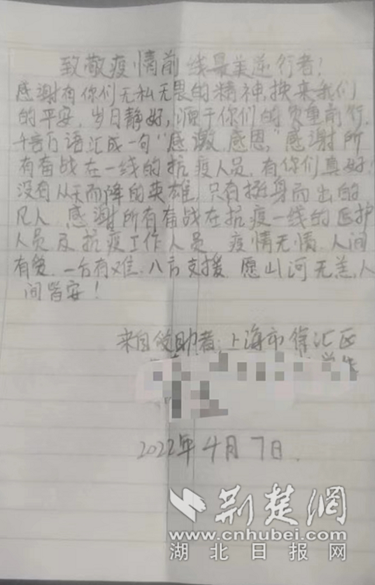 致敬疫情前线最美逆行者！
感谢有你们无私无畏的精神，换来我们
的平安，岁月静好，源于你们的负重前行，
千言万语汇成一句“感激，感恩，”感谢所
有奋战在一线的抗疫人员，有你们真好！
没有从天而降的英雄，只有挺身而出的
凡人，感谢所有奋战在抗疫一线的医护
人员及抗疫工作人员，疫情无情，人间
有爱，一方有难，八方支援，愿山河无恙，人
间皆安！
来自受助者：上海市徐汇区
2022年4月7日.
荆楚网
www.cnhubei.com
湖北日报网